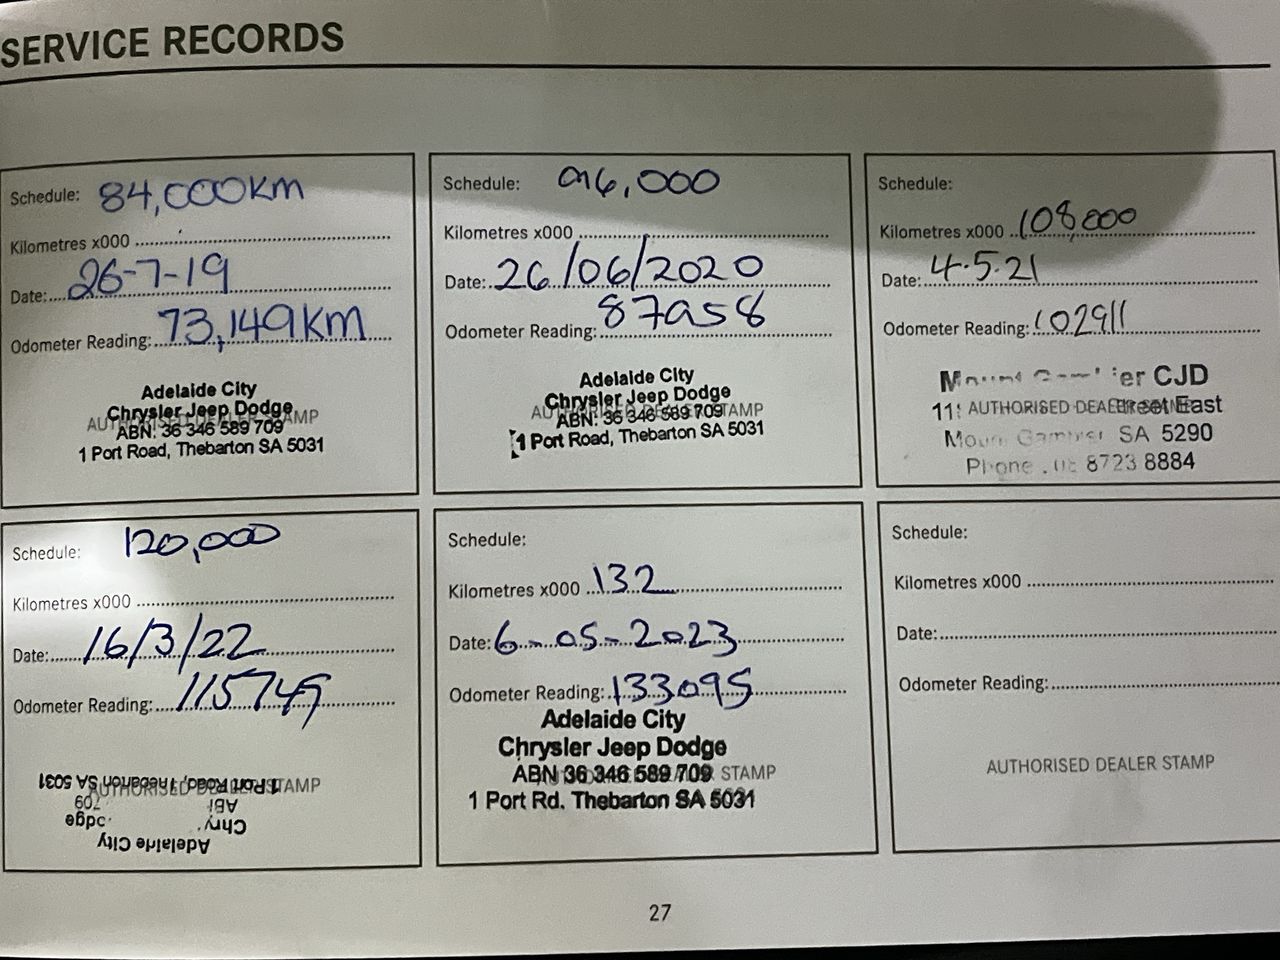 SERVICE RECORDS
Schedule: 84,000KM
Kilometres x000
Date: 26-7-19
Odometer Reading: 73,149KM
AUTHORISED DEALER STAMP
Adelaide City
Chrysler Jeep Dodge
ABN: 36 346 589 709
1 Port Road, Thebarton SA 5031
Schedule: 96,000
Kilometres x000
Date: 26/06/2020
Odometer Reading: 87958
AUTHORISED DEALER STAMP
Adelaide City
Chrysler Jeep Dodge
ABN: 36 346 589 709
1 Port Road, Thebarton SA 5031
Schedule:
Kilometres x000 108,000
Date: 4.5.21
Odometer Reading: 102911
Mount Gambier CJD
AUTHORISED DEALER
Street East
Mount Gambier SA 5290
Phone 08 8723 8884
Schedule: 120,000
Kilometres x000
Date: 16/3/22
Odometer Reading: 115749
AUTHORISED DEALER STAMP
1 Port Road, Thebarton SA 5031
709
Adelaide City
Schedule:
Kilometres x000 132
Date: 6-05-2023
Odometer Reading: 133095
Adelaide City
Chrysler Jeep Dodge
ABN 36 346 589 709
STAMP
1 Port Rd. Thebarton SA 5031
Schedule:
Kilometres x000
Date:
Odometer Reading:
AUTHORISED DEALER STAMP
27